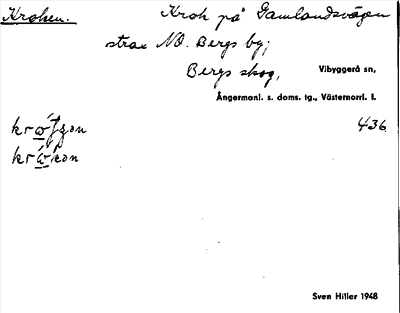 Kroken. Krok på Gamlandsvägen
strax NO. Bergs by;
Bergs skog, Vibyggerå sn,
Ångermanl. s. doms. tg., Västernorrl. l.
436
Sven Hiller 1948